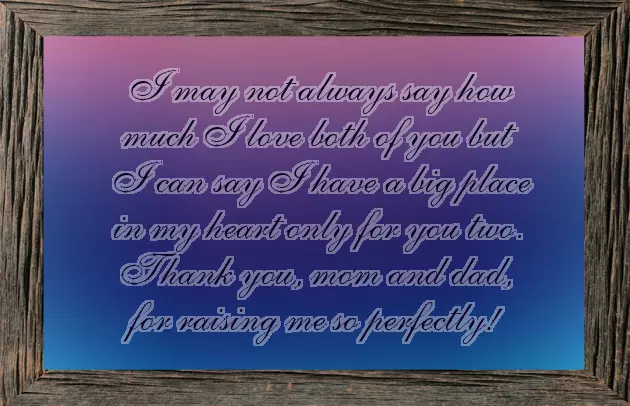 I may not always say how
much I love both of you but
I can say I have a big place
in my heart only for you two.
Thank you, mom and dad,
for raising me so perfectly!